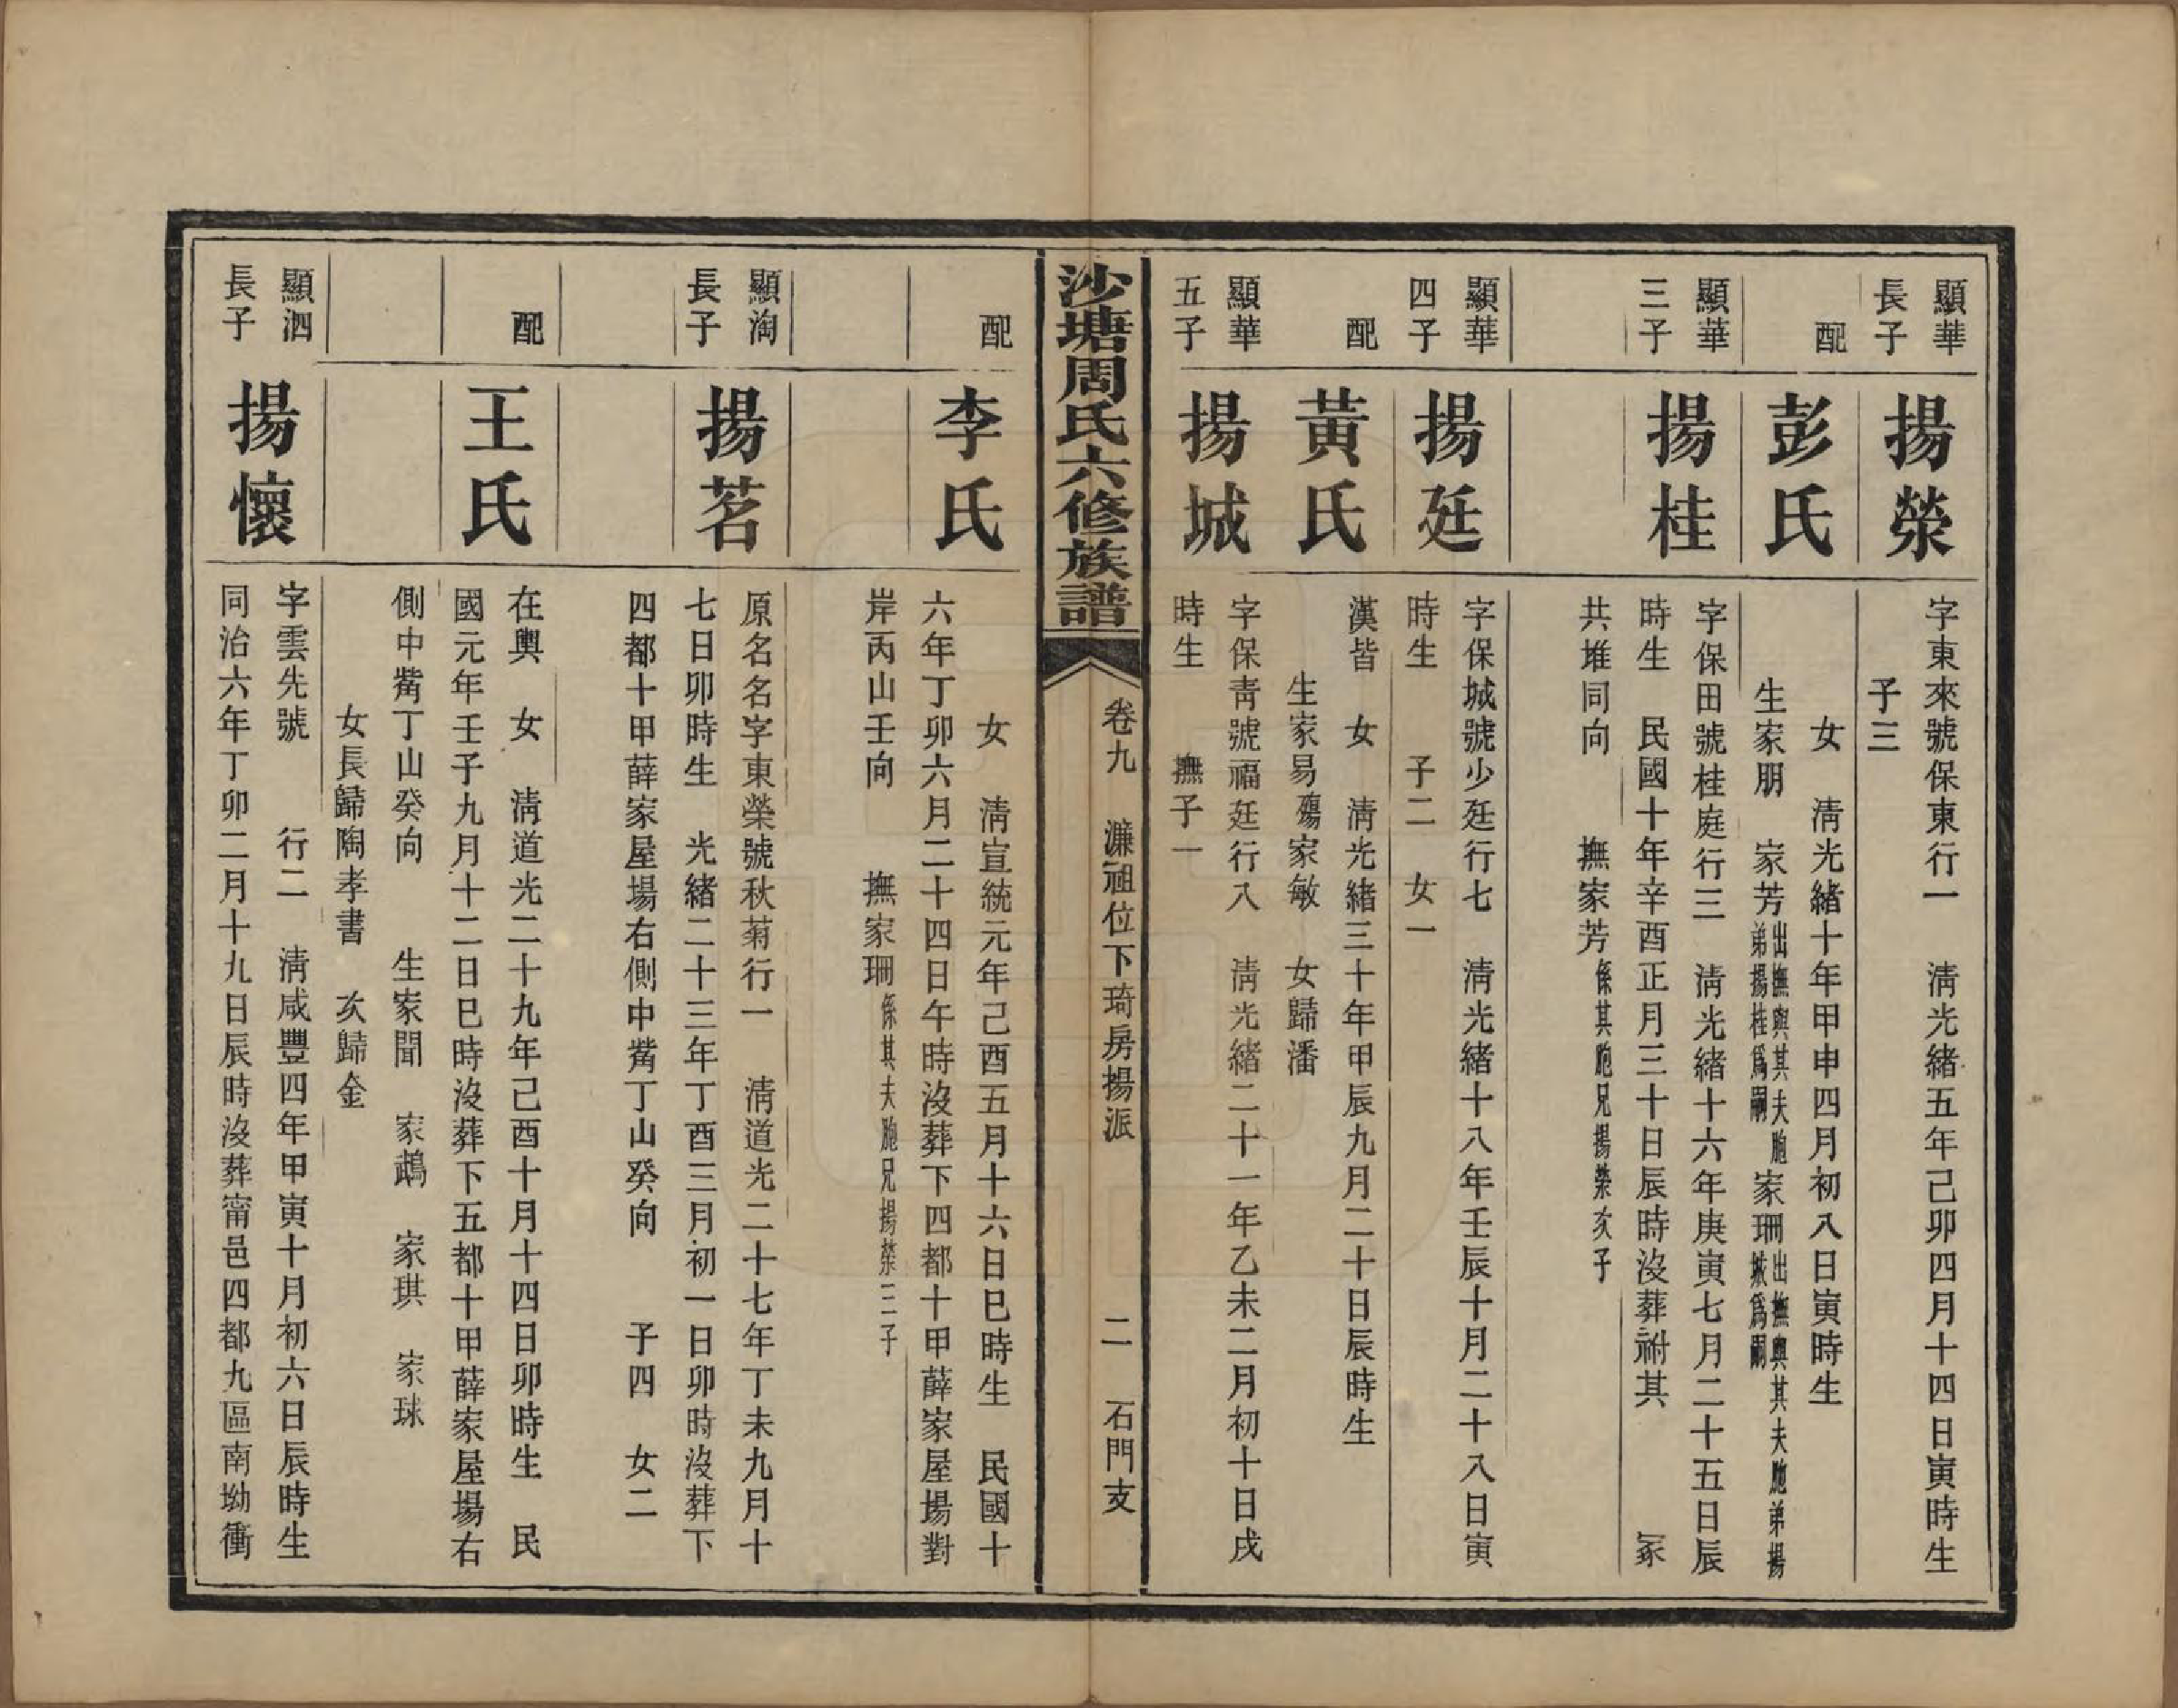 顯華
長子
揚榮
字東來號保東行一　淸光緒五年己卯四月十四日寅時生
子三
配
彭氏
女　淸光緒十年甲申四月初八日寅時生
生家朋　家芳出撫與其夫胞弟揚桂爲嗣　家珊出撫與其夫胞弟揚城爲嗣
顯華
三子
揚桂
字保田號桂庭行三　淸光緒十六年庚寅七月二十五日辰
時生　民國十年辛酉正月三十日辰時沒葬祔其　　冢
共堆同向　　撫家芳係其胞兄揚榮次子
顯華
四子
揚廷
字保城號少廷行七　淸光緒十八年壬辰十月二十八日寅
時生　　子二　女一
配
黃氏
漢皆　女　淸光緒三十年甲辰九月二十日辰時生
生家易殤家敏　女歸潘
顯華
五子
揚城
字保靑號福廷行八　淸光緒二十一年乙未二月初十日戌
時生　　撫子一
沙塘周氏六修族譜
卷九　濂祖位下琦房揚派　　　二　石門支
配
李氏
女　淸宣統元年己酉五月十六日巳時生　民國十
六年丁卯六月二十四日午時沒葬下四都十甲薛家屋場對
岸丙山壬向　　撫家珊係其夫胞兄揚榮三子
顯淘
長子
揚茗
原名名字東榮號秋菊行一　淸道光二十七年丁未九月十
七日卯時生　光緒二十三年丁酉三月初一日卯時沒葬下
四都十甲薛家屋場右側中嘴丁山癸向　　子四　女二
配
王氏
在輿　女　淸道光二十九年己酉十月十四日卯時生　民
國元年壬子九月十二日巳時沒葬下五都十甲薛家屋場右
側中嘴丁山癸向　　生家聞　家鵡　家琪　家球
女長歸陶孝書　次歸金
顯泗
長子
揚懷
字雲先號　　行二　淸咸豐四年甲寅十月初六日辰時生
同治六年丁卯二月十九日辰時沒葬甯邑四都九區南坳衝